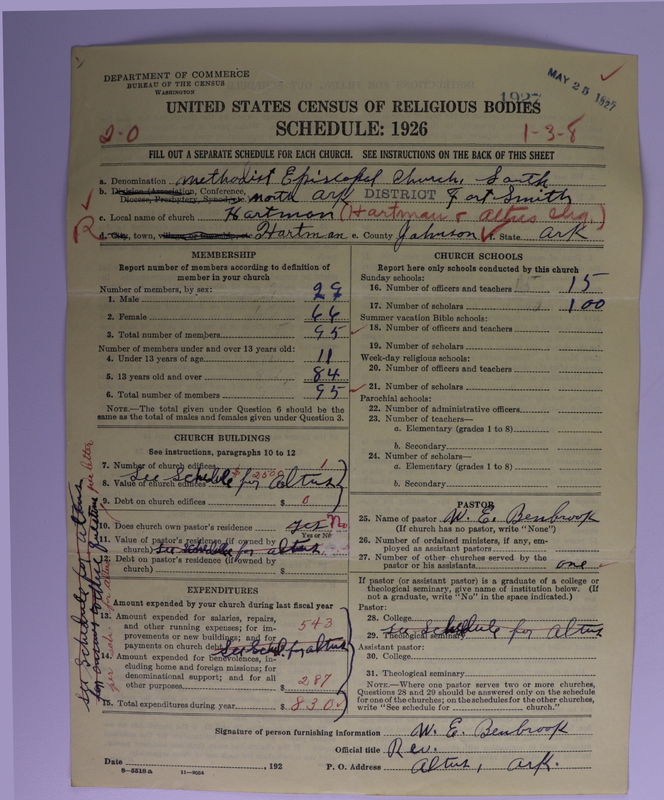 DEPARTMENT OF COMMERCE
BUREAU OF THE CENSUS
WASHINGTON
MAY 25 1927
1927
UNITED STATES CENSUS OF RELIGIOUS BODIES
SCHEDULE: 1926
2-0
1-3-8
FILL OUT A SEPARATE SCHEDULE FOR EACH CHURCH. SEE INSTRUCTIONS ON THE BACK OF THIS SHEET
a. Denomination Methodist Episcopal Church, South
b. Division (Association, Conference, Diocese, Presbytery, Synod North Ark DISTRICT Fort Smith
c. Local name of church Hartman (Hartman & Altus chg.)
d. City, town, Hartman e. County Johnson f. State Ark
MEMBERSHIP
Report number of members according to definition of member in your church
Number of members, by sex:
1. Male 29
2. Female 66
3. Total number of members 95
Number of members under and over 13 years old:
4. Under 13 years of age 11
5. 13 years old and over 84
6. Total number of members 95
NOTE.—The total given under Question 6 should be the same as the total of males and females given under Question 3.
CHURCH BUILDINGS
See instructions, paragraphs 10 to 12
7. Number of church edifices 1
8. Value of church edifices $ 2500
See Schedule for Altus
9. Debt on church edifices $ 0
10. Does church own pastor's residence yes No
Yes or No
11. Value of pastor's residence (if owned by church) See schedule for altus
12. Debt on pastor's residence (if owned by church) $
See Schedule for Altus
per letter
EXPENDITURES
Amount expended by your church during last fiscal year
13. Amount expended for salaries, repairs, and other running expenses; for improvements or new buildings; and for payments on church debt 543
See Sched. for altus
14. Amount expended for benevolences, including home and foreign missions; for denominational support; and for all other purposes $ 287
15. Total expenditures during year $ 830
CHURCH SCHOOLS
Report here only schools conducted by this church
Sunday schools:
16. Number of officers and teachers 15
17. Number of scholars 100
Summer vacation Bible schools:
18. Number of officers and teachers
19. Number of scholars
Week-day religious schools:
20. Number of officers and teachers
21. Number of scholars
Parochial schools:
22. Number of administrative officers
23. Number of teachers—
a. Elementary (grades 1 to 8)
b. Secondary
24. Number of scholars—
a. Elementary (grades 1 to 8)
b. Secondary
PASTOR
25. Name of pastor W. E. Benbrook
(If church has no pastor, write "None")
26. Number of ordained ministers, if any, employed as assistant pastors
27. Number of other churches served by the pastor or his assistants one
If pastor (or assistant pastor) is a graduate of a college or theological seminary, give name of institution below. (If not a graduate, write "No" in the space indicated.)
Pastor:
28. College
See Schedule for Altus
29. Theological seminary
Assistant pastor:
30. College
31. Theological seminary
NOTE.—Where one pastor serves two or more churches, Questions 28 and 29 should be answered only on the schedule for one of the churches; on the schedules for the other churches, write "See schedule for church."
Signature of person furnishing information W. E. Benbrook
Official title Rev.
Date , 192 P. O. Address Altus, Ark.
8-5518a 11-9054